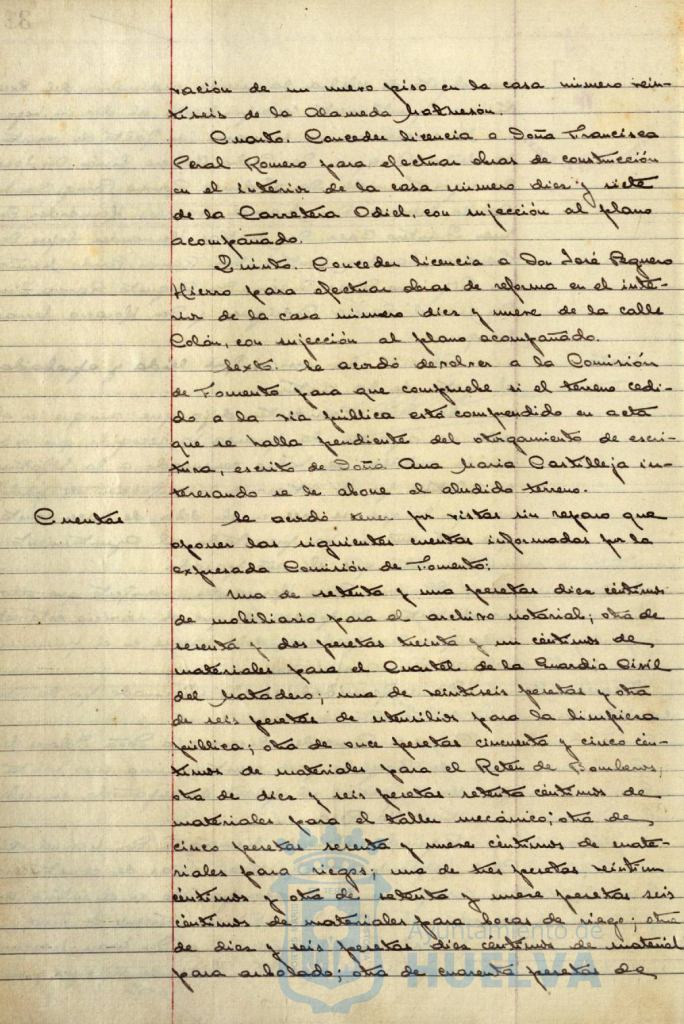 ración de un nuevo piso en la casa número vein-
tiseis de la Alameda Matheson.
Cuarto. Conceder licencia a Doña Francisca
Peral Romero para efectuar obras de construcción
en el interior de la casa número diez y siete
de la Carretera Odiel, con sujección al plano
acompañado.
Quinto. Conceder licencia a Don José Peguero
Hierro para efectuar obras de reforma en el inte-
rior de la casa número diez y nueve de la calle
Colón, con sujección al plano acompañado.
Sexto. Se acordó devolver a la Comisión
de Fomento para que compruebe si el terreno cedi-
do a la via pública está compendido en acta
que se halla pendiente del otorgamiento de escri-
tura, escrito de Doña Ana Maria Castilleja in-
teresando se le abone el aludido terreno.
Cuentas
Se acordó tener por vistas sin reparo que
oponer las siguientes cuentas informadas por la
expresada Comisión de Fomento:
Una de setenta y una pesetas diez céntimos
de mobiliario para el archivo notarial; otra de
sesenta y dos pesetas treinta y un céntimos de
materiales para el Cuartel de la Guardia Civil
del Matadero; una de veintiseis pesetas y otra
de seis pesetas de utensilios para la limpieza
pública; otra de once pesetas cincuenta y cinco cén-
timos de materiales para el Retén de Bomberos;
otra de diez y seis pesetas setenta céntimos de
materiales para el taller mecánico; otra de
cinco pesetas sesenta y nueve céntimos de mate-
riales para riegos; una de tres pesetas veintiun
céntimos y otra de setenta y nueve pesetas seis
céntimos de materiales para bocas de riego; otra
de diez y seis pesetas diez céntimos de material
para arbolado; otra de cuarenta pesetas de
Ayuntamiento de
HUELVA